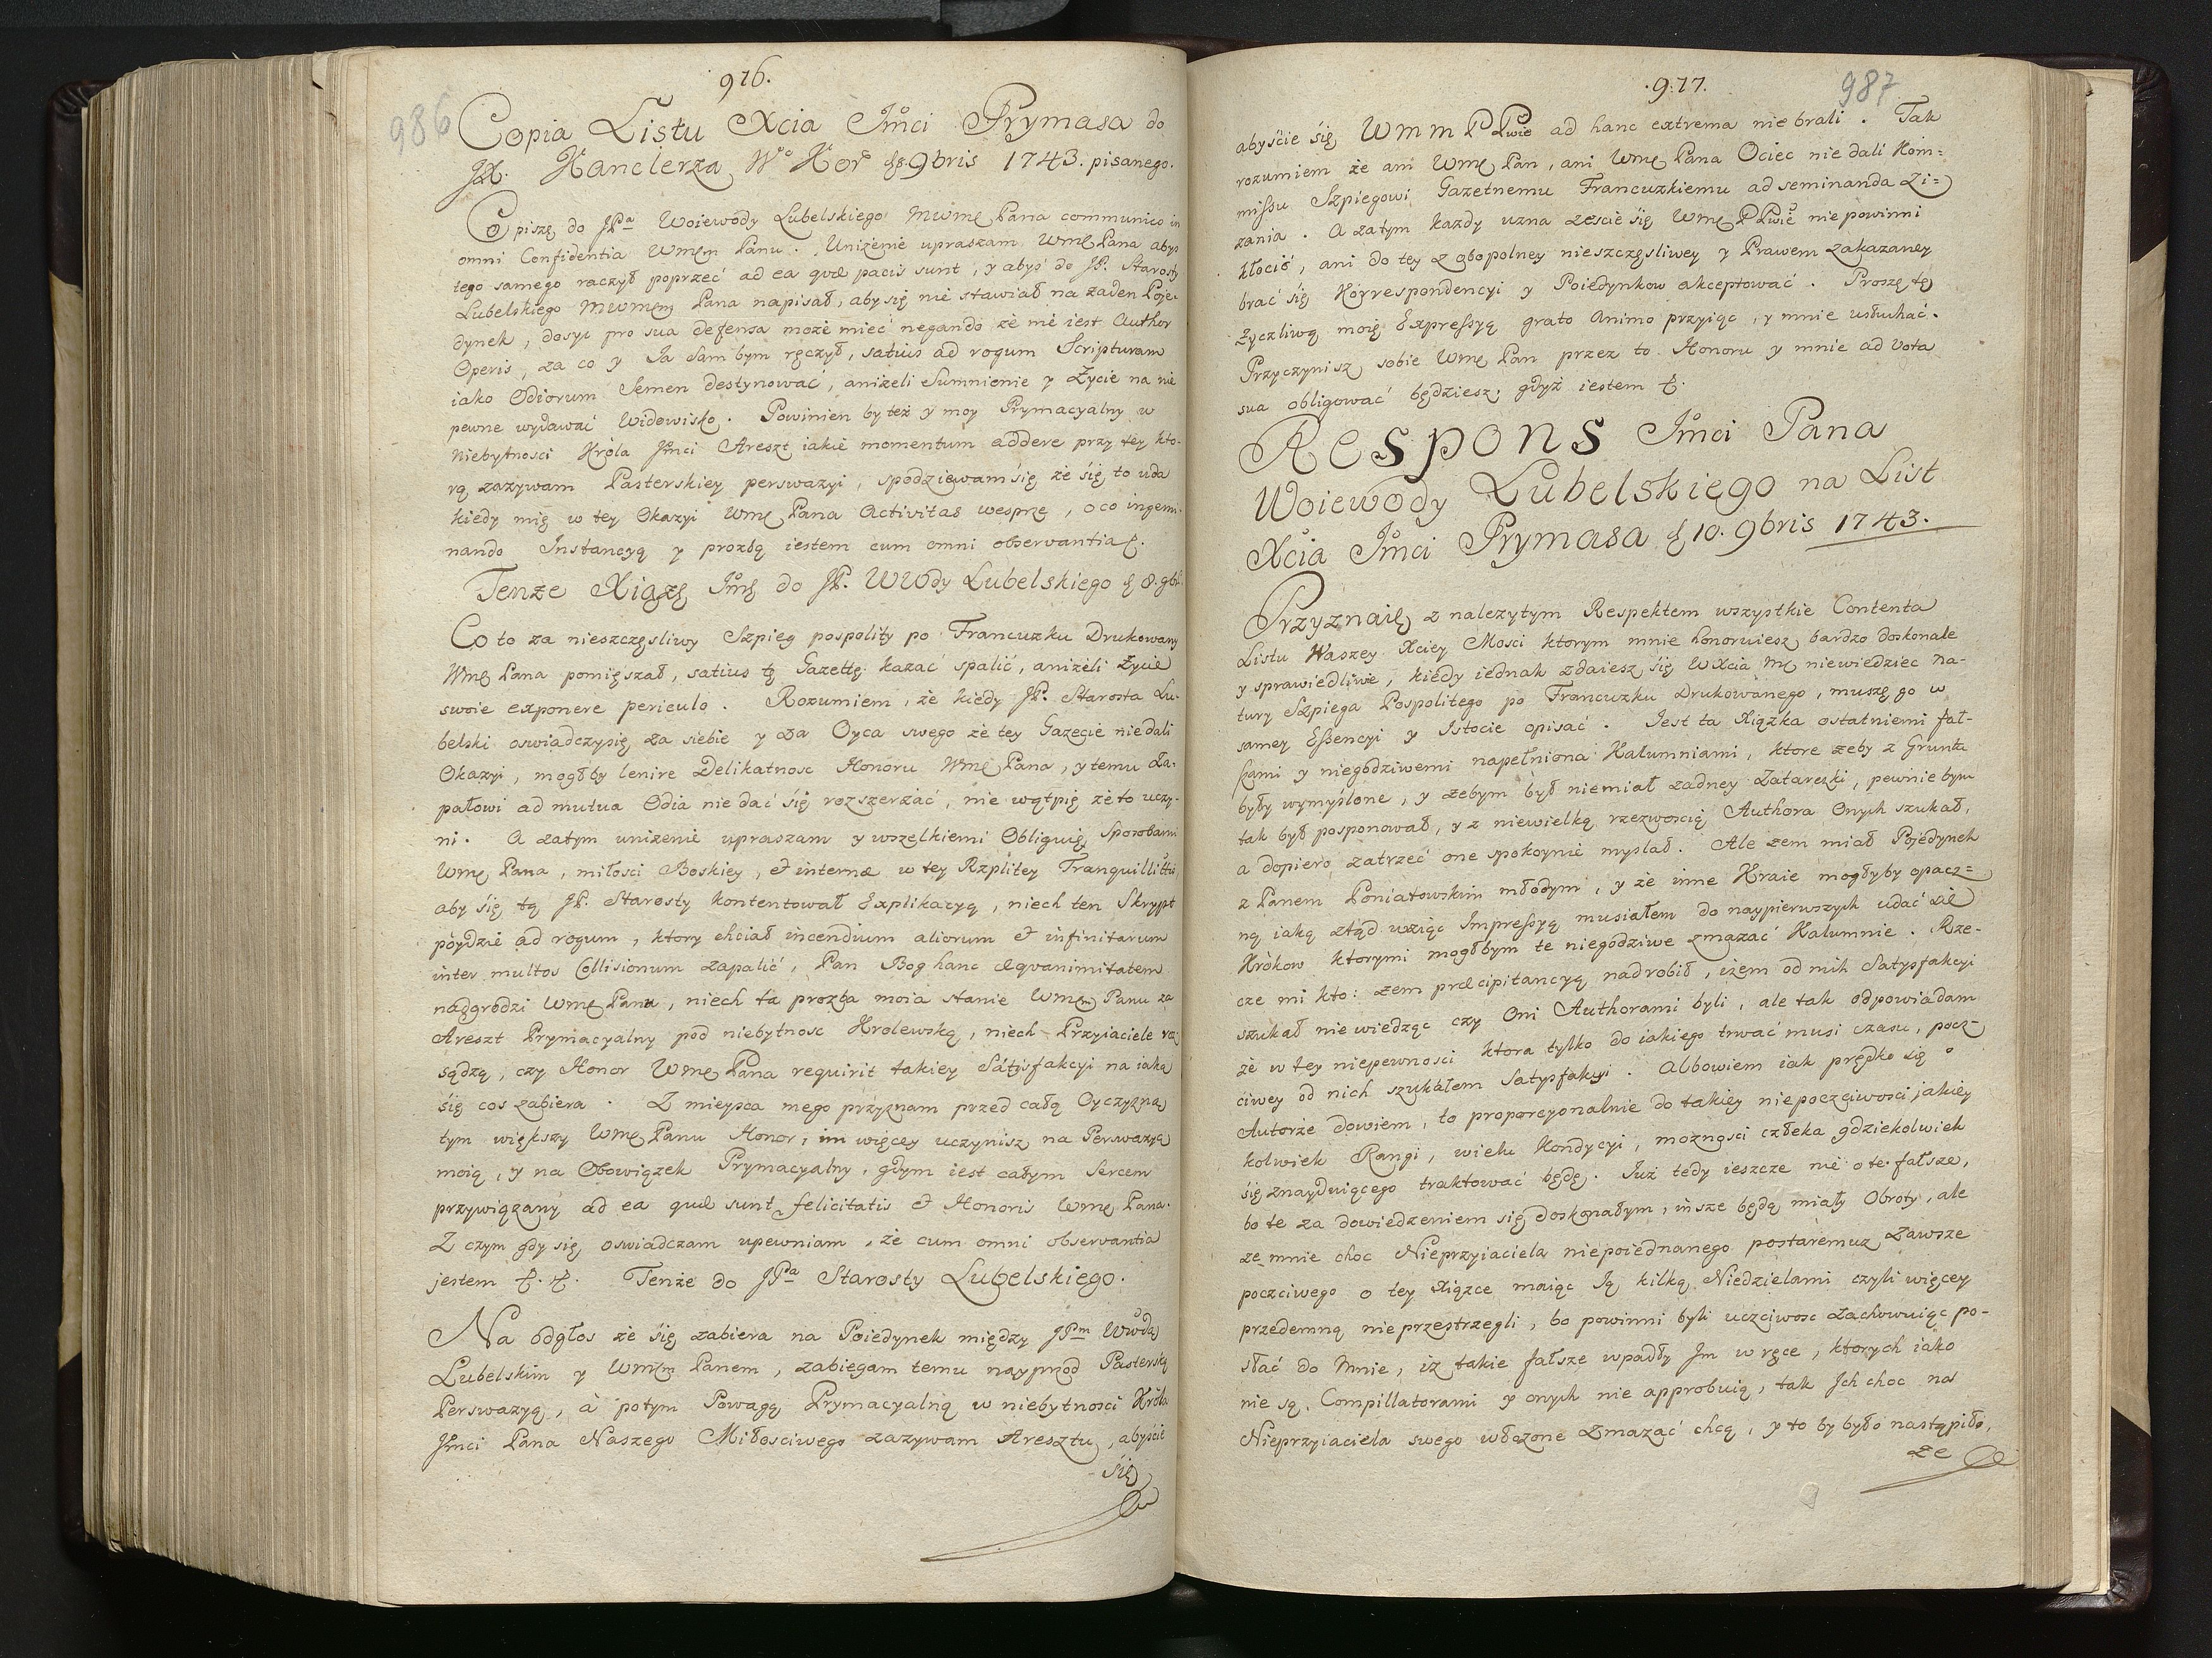 976.
986
Copia Listu Xcia Jmci Prymasa do
JP. Kanclerza Wo Kor d 8 9bris 1743. pisanego.
Co piszę do JPa Woiewody Lubelskiego Mwmę Pana communico in
omni Confidentia Wmęm Panu. Uniżenie upraszam Wmę Pana abyś
tego samego raczył poprzeć ad ea quæ pacis sunt, y abyś do JP. Starosty
Lubelskiego Mwmęm Pana napisał, aby się nie stawiał na zaden Poje-
dynek, dosyć pro sua defensa może mieć negando że nie iest Author
Operis, za co y Ja sam bym ręczył, satius ad rogum Scripturam
iako Odiorum Semen destynować, aniżeli Sumnienie y Życie na nie
pewne wydawać Widowisko. Powinien by też y moy Prymacyalny w
Niebytnosci Króla Jmci Areszt iakie momentum addere przy tey kto-
rą zazywam Pasterskiey perswazyi, spodziewam się że się to uda
kiedy mię w tey Okazyi Wmę Pana Activitas wesprze, o co ingemi-
nando Instancyą y prozbą iestem cum omni observantia &.
Tenze Xiąże Jmę do JP. WWdy Lubelskiego d 8. 9br.
Co to za nieszczęsliwy Szpieg pospolity po Francuzku Drukowany
Wmę Pana pomięszał, satius tę Gazettę kazać spalić, aniżeli życie
swoie exponere periculo. Rozumiem, że kiedy JP. Starosta Lu-
belski oswiadczy się za siebie y za Oyca swego że tey Gazecie nie dali
Okazyi, mogłby lenire Delikatnosc Honoru Wmę Pana, y temu Za-
pałowi ad mutua Odia nie dać się rozszerzać, nie wątpię że to uczy-
ni. A zatym uniżenie upraszam y wszelkiemi Obliguię Sposobami
Wmę Pana, miłosci Boskiey, & internæ w tey Rzplitey Tranquillitti,
aby się tą JP. Starosty kontentował Explikacyą, niech ten Skrypt
póydzie ad rogum, ktory chciał incendium aliorum & infinitarum
inter multos Collisionum zapalić, Pan Bog hanc æqvanimitatem
nadgrodzi Wmę Panu, niech ta prozba moia stanie Wmęm Panu za
Areszt Prymacyalny pod niebytnosc Krolewską, niech Przyiaciele ro-
sądzą, czy Honor Wmę Pana requirit takiey Satysfakcyi na iaką
się cos zabiera. Z mieysca mego przyznam przed całą Oyczyzną
tym większy Wmę Panu Honor, im więcey uczynisz na Perswazyą
moią, y na Obowiązek Prymacyalny, gdym iest całym Sercem
przywiązany ad ea quæ sunt felicitatis & Honoris Wmę Pana.
Z czym gdy się oswiadczam upewniam, że cum omni observantia
jestem &. &. Tenże do JPa Starosty Lubelskiego.
Na odgłos że się zabiera na Poiedynek między JPm Wwdą
Lubelskim y Wmęm Panem, zabiegam temu nayprzod Pasterską
Perswazyą, à potym Powagą Prymacyalną w niebytnosci Króla
Jmci Pana Naszego Miłosciwego zazywam Aresztu, abyście
się
.977.
987
abyście się WmmPPwie ad hanc extrema nie brali. Tak
rozumiem że ani Wmę Pan, ani Wmę Pana Ociec nie dali Kom=
missu Szpiegowi Gazetnemu Francuzkiemu ad seminanda Zi=
zania. A zatym kazdy uzna zescie się Wmę PPwie nie powinni
kłocić, ani do tey z obopolney nieszczęsliwey y Prawem zakazaney
brać się Korrespondencyi y Poiedynkow akceptować. Proszę tę
życzliwą moię Expressyą grato Animo przyiąc, y mnie usłuchać.
Przyczynisz sobie Wmę Pan przez to Honoru y mnie ad vota
sua obligować będziesz, gdyż iestem &.
Respons Jmci Pana
Woiewody Lubelskiego na List
Xcia Jmci Prymasa d 10. 9bris 1743.
Przyznaię z nalezytym Respektem wszystkie Contenta
Listu Waszey Xciey Mosci ktorym mnie honoruiesz bardzo doskonałe
y sprawiedliwe, kiedy iednak zdaiesz się WXcia Mę niewiedziec na-
tury Szpiega Pospolitego po Francuzku Drukowanego, muszę go w
samey Essencyi y Istocie opisać. Jest ta Xiązka ostatniemi fał-
szami y niegodziwemi napełniona Kalumniami, ktore zeby z Gruntu
były wymyślone, y zebym był niemiał zadney Zatarczki, pewnie bym
tak był posponował, y z niewielką rzezwoscią Authora Onych szukał,
a dopiero zatrzeć one spokoynie myslał. Ale zem miał Pojedynek
z Panem Poniatowskim młodym, y że inne Kraie mogłyby opacz=
ną iaką ztąd wziąc Impressyą musiałem do naypierwszych udać się
Krókow ktorymi mogłbym te niegodziwe zmazać Kalumnie. Rze-
cze mi kto: zem præcipitancyą nadrobił, iżem od nich Satysfakcyi
szukał nie wiedząc czy Oni Authorami byli, ale tak odpowiadam
że w tey niepewnosci ktora tylko do iakiego trwać musi czasu, pocz-
ciwey od nich szukałem Satysfakcyi. Albowiem iak prędko się o
Autorze dowiem, to proporcyonalnie do takiey niepoczciwosci jakiey
kolwiek Rangi, wieku Kondycyi, moznosci człeka gdziekolwiek
się znayduiącego traktować będę. Już tedy ieszcze nie o te fałsze,
bo te za dowiedzeniem się doskonałym, insze będą miały Obroty, ale
ze mnie choc Nieprzyiaciela niepoiednanego postaremuz zawsze
poczciwego o tey Xiązce maiąc Ją kilką Niedzielami czyli więcey
przedemną nie przestrzegli, bo powinni byli uczciwosc zachowuiąc po-
słać do Mnie, iz takie fałsze wpadły Jm w ręce, ktorych iako
nie są Compillatorami y onych nie approbuią, tak Jch choc na
Nieprzyiaciela swego włożone Zmazać chcą, y to by było nastąpiło,
ze